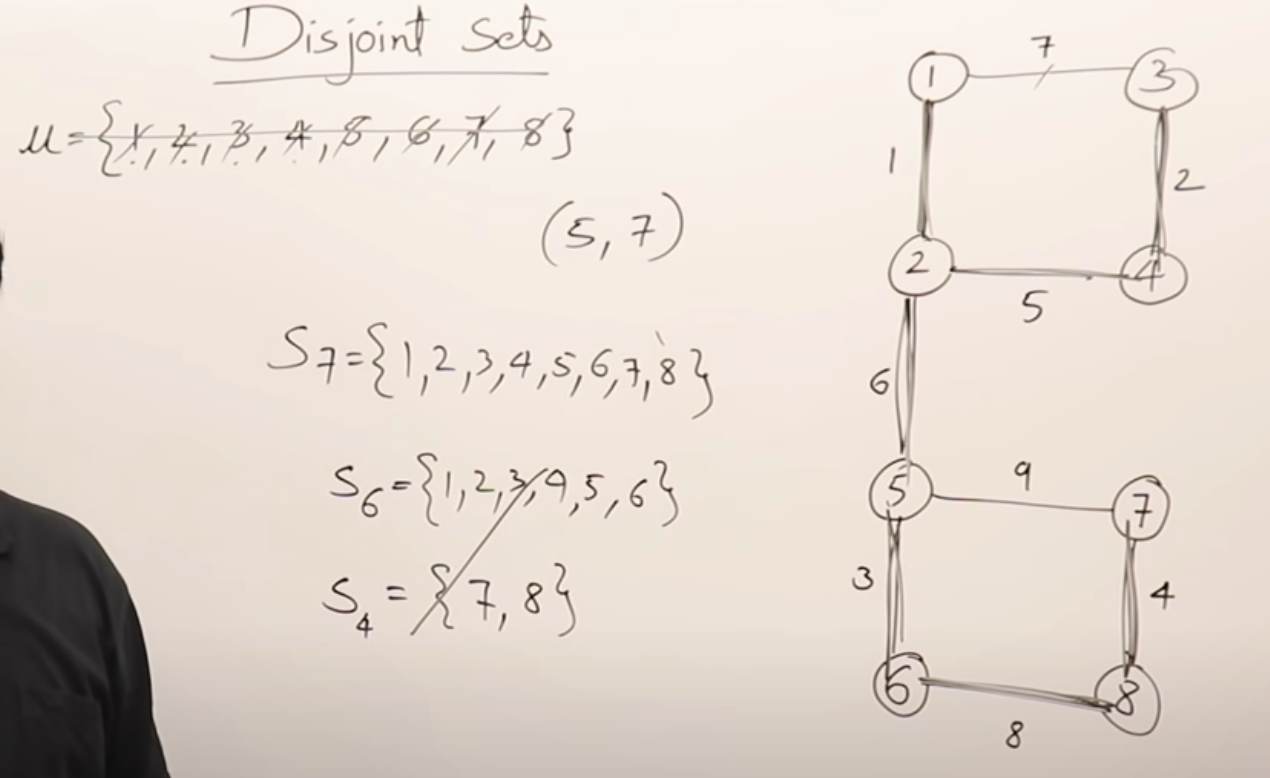 Disjoint Sets
μ={1,2,3,4,5,6,7,8}
(5,7)
S7={1,2,3,4,5,6,7,8}
S6={1,2,3,4,5,6}
S4={7,8}
1 7 3
1 2
2 5 4
6
5 9 7
3 4
6 8 8